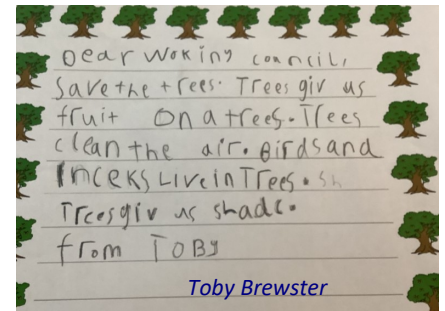 Dear Woking council,
Save the trees. Trees giv us
fruit on a trees. Trees
clean the air. Birds and
inceks Live in Trees. sh
Trees giv us shade.
from TOBY
Toby Brewster